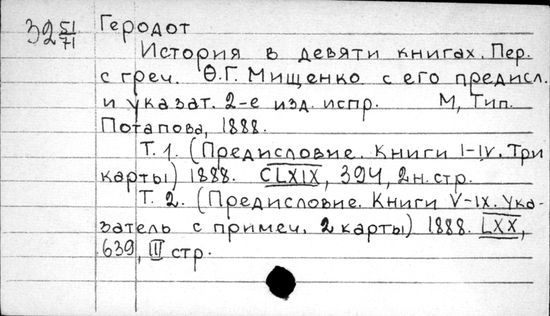 32 51/71 Геродот
История в девяти книгах. Пер.
с греч. Ѳ.Г. Мищенко с его предисл.
и указат. 2-е изд. испр. М, Тип.
Потапова, 1888.
Т. 1. (Предисловие. Книги I-IV. Три
карты) 1888. CLXIX, 394, 2 н. стр.
Т. 2. (Предисловие. Книги V-IX. Ука-
затель с примеч. 2 карты) 1888. LXX,
639, II стр.